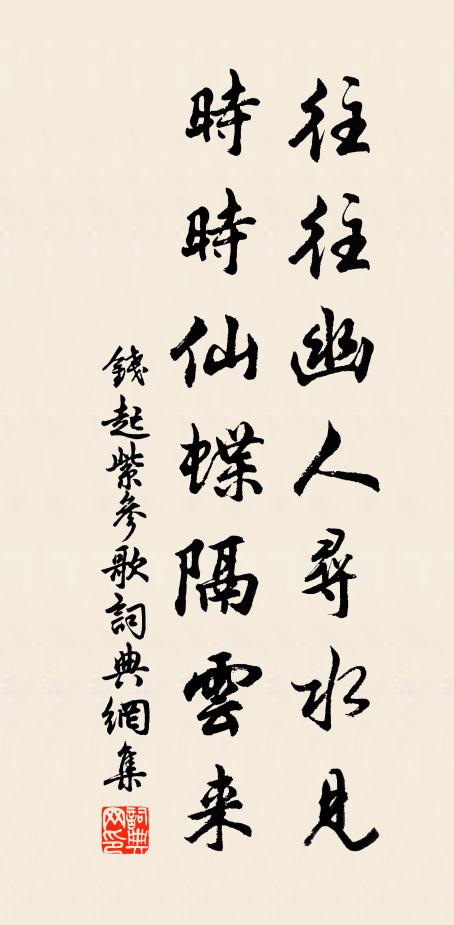 往往幽人尋水見
時時仙蝶隔雲来
錢起紫參歌詞典網集
詞典網印